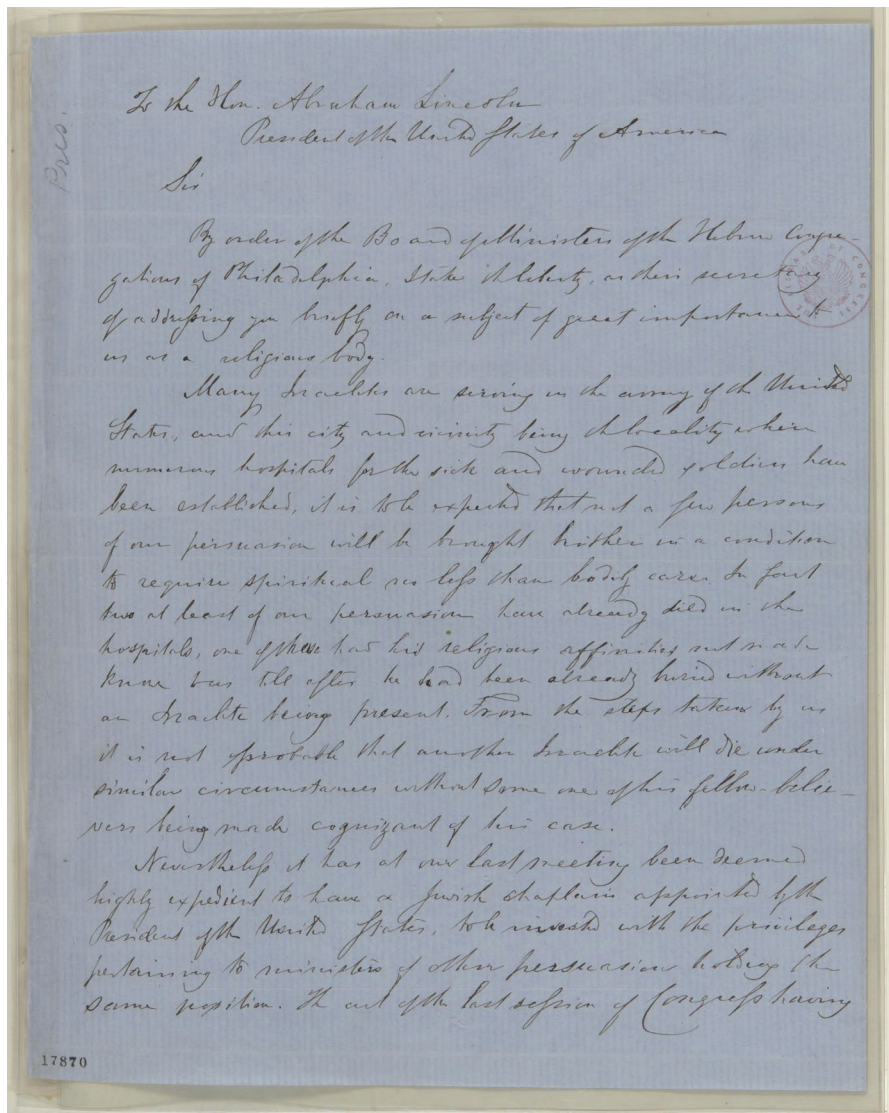 To the Hon. Abraham Lincoln
President of the United States of America
Pres.
Sir
By order of the Board of Ministers of the Hebrew Congre-
gations of Philadelphia, I take the liberty, as their secretary
of addressing you briefly on a subject of great importance to
us as a religious body.
Many Israelites are serving in the army of the United
States, and this city and vicinity being the locality where
numerous hospitals for the sick and wounded soldiers have
been established, it is to be expected that not a few persons
of our persuasion will be brought hither in a condition
to require spiritual no less than bodily care. In fact
two at least of our persuasion have already died in the
hospitals, one of these had his religious affinities not made
know   till after he had been already buried without
an Israelite being present. From the steps taken by us
it is not probable that another Israelite will die under
similar circumstances without some one of his fellow-belie-
vers being made cognizant of his case.
Nevertheless it has at our last meeting been deemed
highly expedient to have a Jewish chaplain appointed by the
President of the United States, to be invested with the privileges
pertaining to ministers of other persuasion holding the
same position. The act of the last session of Congress having
17870
LIBRARY OF CONGRESS